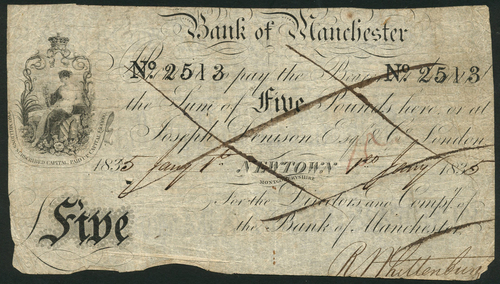 Bank of Manchester
No. 2513 to pay the No. 2513
the Sum of Five Pounds here, or at
Joseph Denison Esq. & Co. London
1835 Jany 1st NEWTOWN Jany 1835
MONTGOMERYSHIRE
For the Directors and Compy. of
the Bank of Manchester
Five